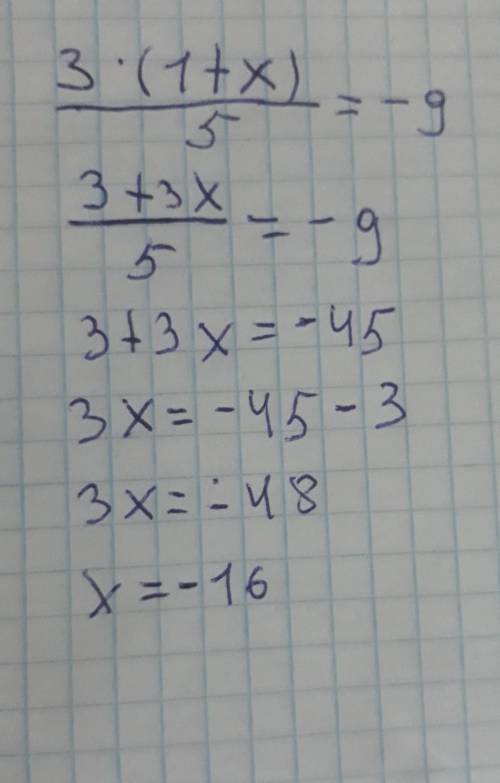 3·(1+x)/5 = -9
3+3x/5 = -9
3+3x=-45
3x=-45-3
3x=-48
x=-16